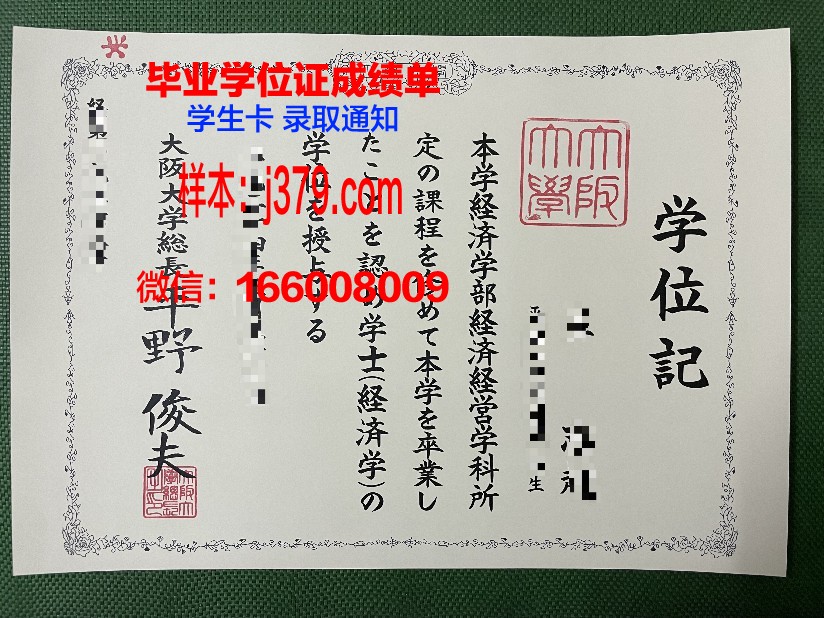 毕业学位证成绩单
学生卡 录取通知
样本:j379.com
微信:166008009
学位記
大阪
大學
生
本学経済学部経済経営学科所
定の課程を修めて本学を卒業し
たことを認め学士(経済学)の
学位を授与する
大阪大学総長
平野俊夫